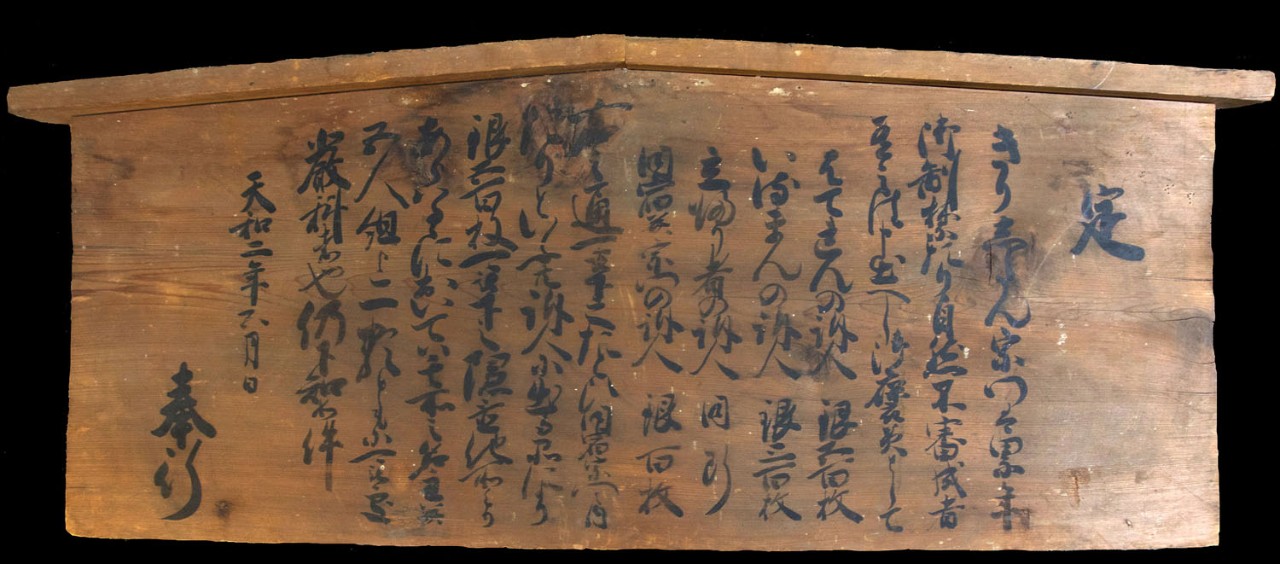 定
きりしたん宗門は累年
御制禁たり自然不審成者
有之は申出へし御褒美として
はてれんの訴人　銀五百枚
いるまんの訴人　銀三百枚
立帰り者の訴人　同断
同宿并宗門の訴人　銀百枚
右之通下さるへしたとひ同宿宗門之内
たりといふとも訴人に出る品により
銀五百枚下さるへし隠置他所より
あらはるゝにおいては其所之名主并
五人組迄一類ともに可
厳科者也仍下知如件
天和二年　月日
奉行